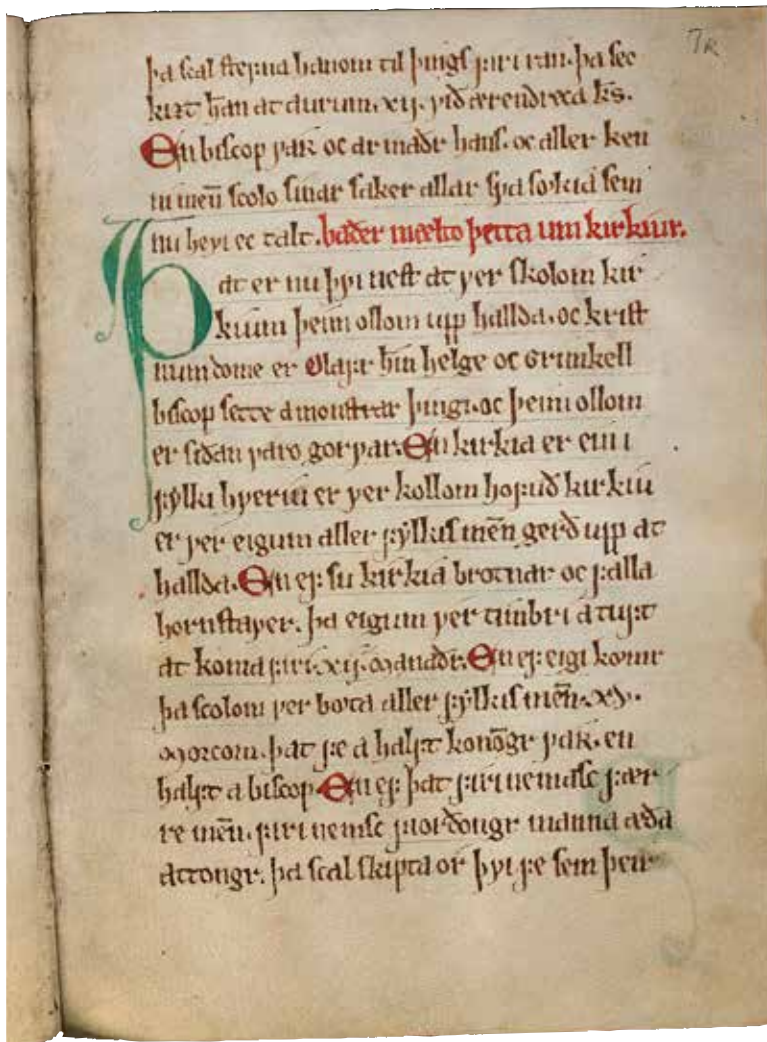 7R
þa scal stefna hanom til þings firi ran. þa sec
kizt h̅an at aurum. xij. við ærendreca k̅s.
En biscop var oc armaðr hans. oc aller ken
ni men̅ scolo sinar saker allar sva sokia sem
nu hevi ec talt. baðer mælto þetta um kirkiur.
Þat er nu þvi nest at ver skolom kir
kium þeim ollom upp hallda. oc krist
num dome er Olafr hin̅ helge oc Grimkell
biscop sette a monstrar þingi. oc þeim ollom
er siðan varo gorvar. En kirkia er ein i
fylki hveriu er ver kollom hofuð kirkiu
er ver eigum aller fylkis men̅ gerð upp at
hallda. En ef su kirkia brotnar oc falla
hornstaver. þa eigum ver timbri a tuft
at koma firi. xij. manaðr. En ef eigi komr
þa scolom ver bøta aller fylkis men̅. xv.
morcom. þat fe a halft konōgr var. en
halft a biscop. En ef þat firi nemasc fær
re men̅. firi nemsc fiorðongr manna æða
attongr. þa scal skipta or þvi fe sem þeir